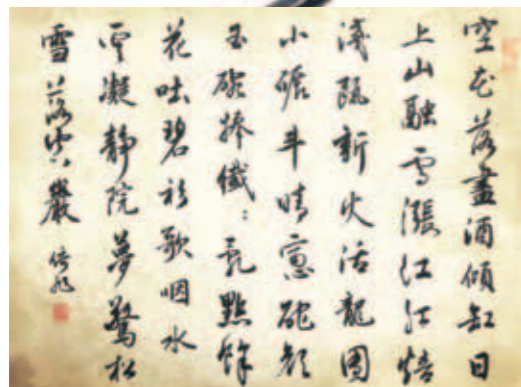 空花落盡酒傾缸日
上山融雪漲江紅焙
淺甌新火活龍團
小碾斗晴窗酡顏
玉碗捧纖〻亂點餘
花唾碧衫歌咽水
雲凝靜院夢驚松
雪落空巖